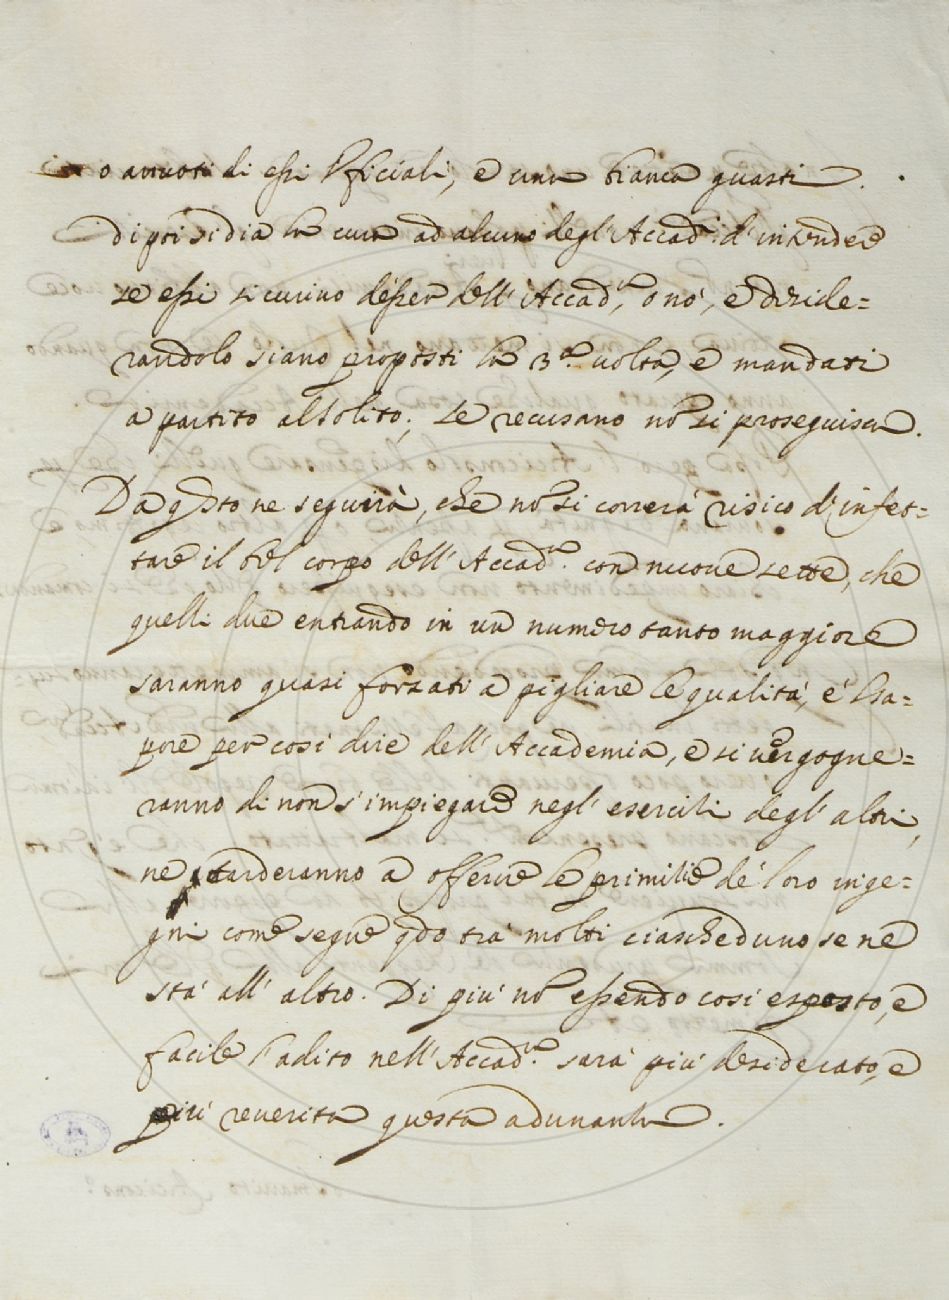 o amuoti di essi Vfficiali, e una bianca guasti.
Di poi si dia la cura ad alcuno degl' Accad.i d' intendere
se essi si curino d'esser dell' Accad.a, o nò, e deside=
randolo siano proposti la 3.a uolta, e mandati
a partito al solito; se recusano nō si proseguisca.
Da q̄sto ne seguirà, che nō si correrà risico d' infet=
tare il bel corpo dell' Accad.a con nuoue sette, che
quelli due entrando in un numero tanto maggiore
saranno quasi forzati a pigliare le qualità, e 'l sa=
pore per cosi dire dell' Accademia, e si uergogne=
ranno di non s' impiegare negl' esercizi degl' altri,
ne tarderanno a offerire le primitie de' loro inge=
gni come segue q̄do tra' molti ciascheduno se ne
stà all' altro. Di piu' nō essendo cosi esposto, e
facile l' adito nell' Accad.a sarà piu' desiderato, e
piu' reuerita questa adunanza.